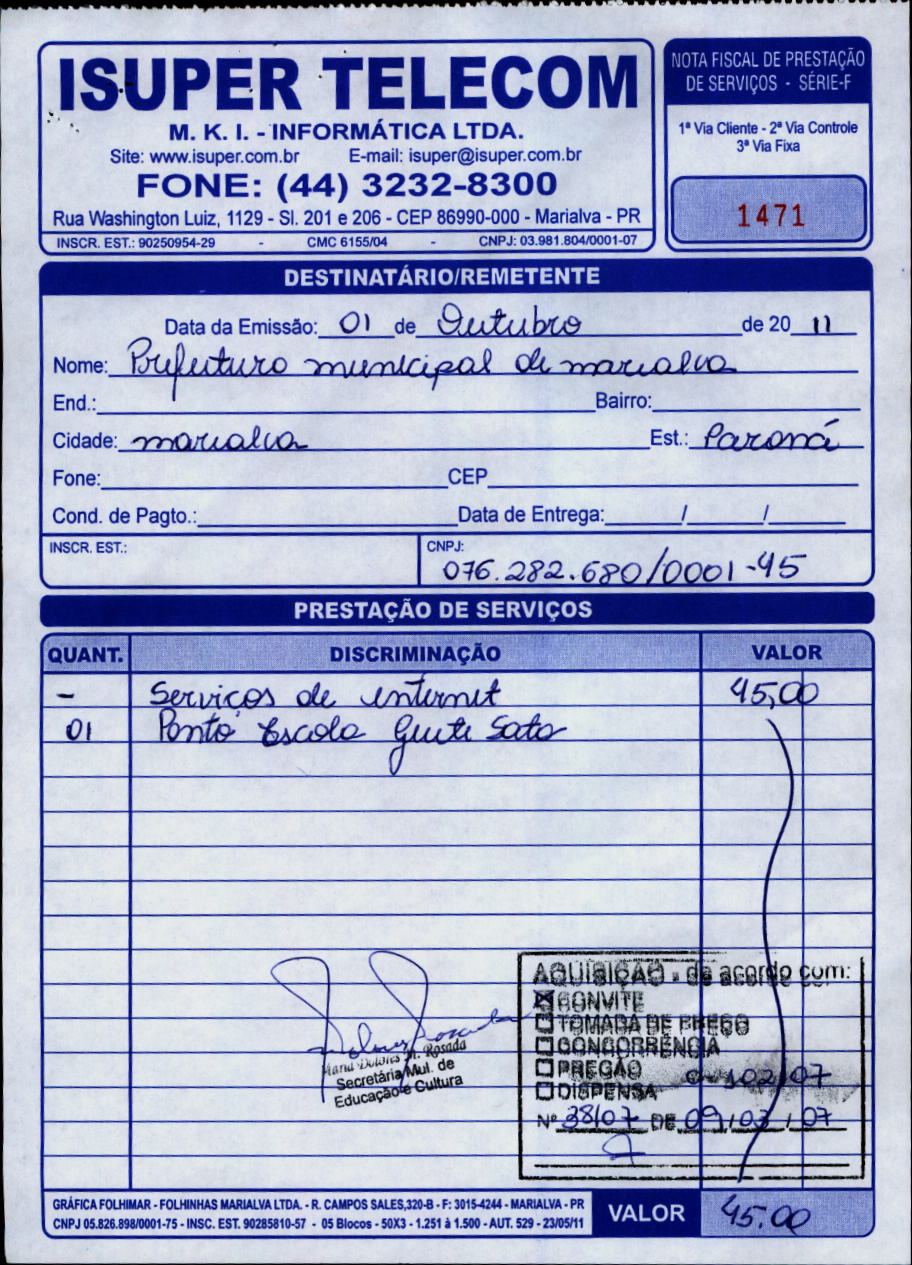 ISUPER TELECOM
M. K. I. - INFORMÁTICA LTDA.
Site: www.isuper.com.br E-mail: isuper@isuper.com.br
FONE: (44) 3232-8300
Rua Washington Luiz, 1129 - Sl. 201 e 206 - CEP 86990-000 - Marialva - PR
INSCR. EST.: 90250954-29 - CMC 6155/04 - CNPJ: 03.981.804/0001-07
NOTA FISCAL DE PRESTAÇÃO
DE SERVIÇOS - SÉRIE-F
1ª Via Cliente - 2ª Via Controle
3ª Via Fixa
1471
DESTINATÁRIO/REMETENTE
Data da Emissão: 01 de Outubro de 20 11
Nome: Prefeitura municipal de marialva
End.: Bairro:
Cidade: marialva Est.: Paraná
Fone: CEP
Cond. de Pagto.: Data de Entrega: / /
INSCR. EST.: CNPJ:
076.282.680/0001-45
PRESTAÇÃO DE SERVIÇOS
QUANT. DISCRIMINAÇÃO VALOR
- Serviços de internet 45,00
01 Ponto Escola Sato
AQUISIÇÃO - de acordo com:
CONVITE
TOMADA DE PREÇO
CONCORRÊNCIA
PREGÃO
DISPENSA 02/07
Nº 38/07 DE 09/03/07
Maria Dolores M. Rosada
Secretária Mul. de
Educação e Cultura
GRÁFICA FOLHIMAR - FOLHINHAS MARIALVA LTDA. - R. CAMPOS SALES,320-B - F: 3015-4244 - MARIALVA - PR
CNPJ 05.826.898/0001-75 - INSC. EST. 90285810-57 - 05 Blocos - 50X3 - 1.251 à 1.500 - AUT. 529 - 23/05/11
VALOR 45.00